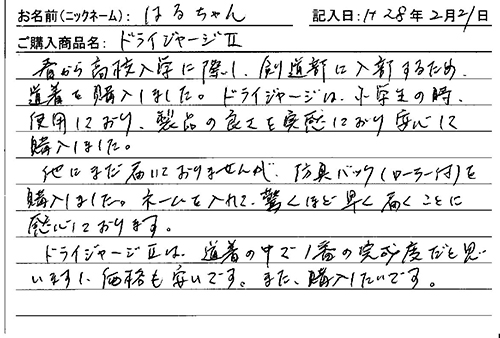 お名前(ニックネーム): はるちゃん 記入日: H 28年 2月 21日
ご購入商品名: ドライジャージⅡ
春から高校入学に際し、剣道部に入部するため、
道着を購入しました。ドライジャージは、小学生の時、
使用しており、製品の良さを実感しており安心して
購入しました。
他にまだ届いておりませんが、防具バック(ローラー付)を
購入しました。ネームを入れて、驚くほど早く届くことに
感心しております。
ドライジャージⅡは、道着の中で1番の完成度だと思
いますし、価格も安いです。また、購入したいです。